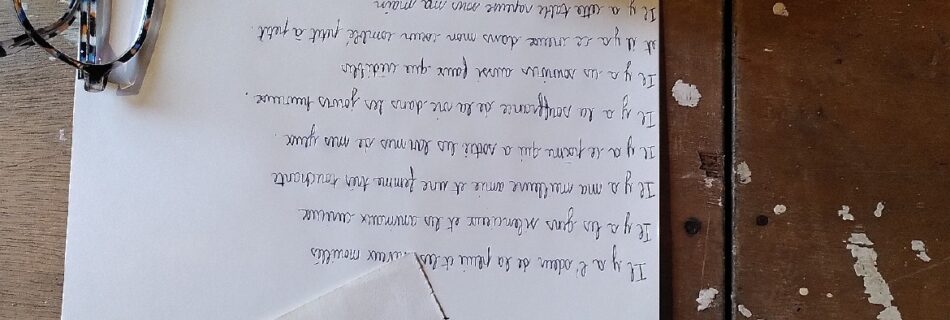 Il y a l'odeur de la pluie et les veux mouillés
Il y a les gens silencieux et les animaux curieux
Il y a ma meilleure amie et une femme très touchante
Il y a ce poème qui a sortie les larmes de mes yeux.
Il y a la souffrance de la vie dans les jours
Il y a us sourires aussi faux que crédibles
et il y a ce creux dans mon coeur comblé petit à petit.
Il y a cette table rugueuse sous ma main